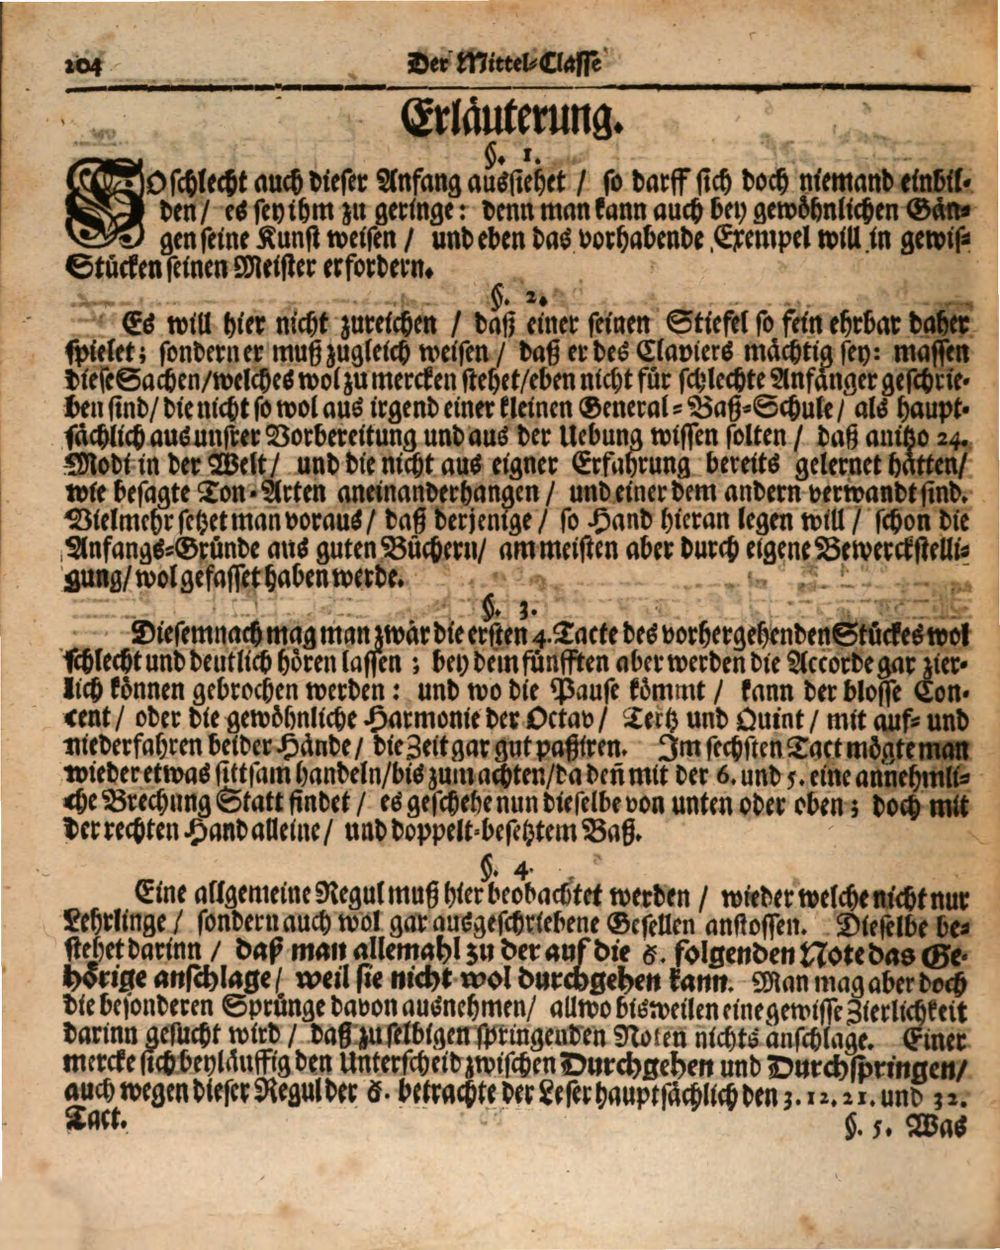 204 Der Mittel-Classe
Erläuterung.
§. 1.
SO schlecht auch dieser Anfang aussiehet / so darff sich doch niemand einbil-
den / es sey ihm zu geringe: denn man kann auch bey gewöhnlichen Gän-
gen seine Kunst weisen / und eben das vorhabende Exempel will in gewis-
Stücken seinen Meister erfordern.
§. 2.
Es will hier nicht zureichen / daß einer seinen Stiefel so fein ehrbar daher
spielet; sondern er muß zugleich weisen / daß er des Claviers mächtig sey: massen
diese Sachen/welches wol zu mercken stehet/eben nicht für schlechte Anfänger geschrie-
ben sind/ die nicht so wol aus irgend einer kleinen General-Baß-Schule/ als haupt-
sächlich aus unsrer Vorbereitung und aus der Uebung wissen solten / daß anitzo 24.
Modi in der Welt/ und die nicht aus eigner Erfahrung bereits gelernet hätten/
wie besagte Ton-Arten aneinanderhangen / und einer dem andern verwandt sind.
Vielmehr setzet man voraus / daß derjenige / so Hand hieran legen will / schon die
Anfangs-Gründe aus guten Büchern/ am meisten aber durch eigene Bewerckstelli-
gung/ wol gefasset haben werde.
§. 3.
Diesemnach mag man zwar die ersten 4. Tacte des vorhergehenden Stückes wol
schlecht und deutlich hören lassen ; bey dem fünfften aber werden die Accorde gar zier-
lich können gebrochen werden: und wo die Pause kömmt / kann der blosse Con-
cent / oder die gewöhnliche Harmonie der Octav/ Tertz und Quint / mit auf- und
niederfahren beider Hände/ die Zeit gar gut paßiren. Im sechsten Tact mögte man
wieder etwas sittsam handeln/bis zum achten/da deñ mit der 6. und 5. eine annehmli-
che Brechung Statt findet / es geschehe nun dieselbe von unten oder oben ; doch mit
der rechten Hand alleine/ und doppelt-besetztem Baß.
§. 4.
Eine allgemeine Regul muß hier beobachtet werden / wieder welche nicht nur
Lehrlinge / sondern auch wol gar ausgeschriebene Gesellen anstossen. Dieselbe be-
stehet darinn / daß man allemahl zu der auf die 6. folgenden Note das Ge-
hörige anschlage/ weil sie nicht wol durchgehen kann. Man mag aber doch
die besonderen Sprünge davon ausnehmen/ allwo bisweilen eine gewisse Zierlichkeit
darinn gesucht wird / daß zu selbigen springenden Noten nichts anschlage. Einer
mercke sich beyläuffig den Unterscheid zwischen Durchgehen und Durchspringen/
auch wegen dieser Regul der 6. betrachte der Leser hauptsächlich den 3. 12. 21. und 32.
Tact.
§. 5. Was